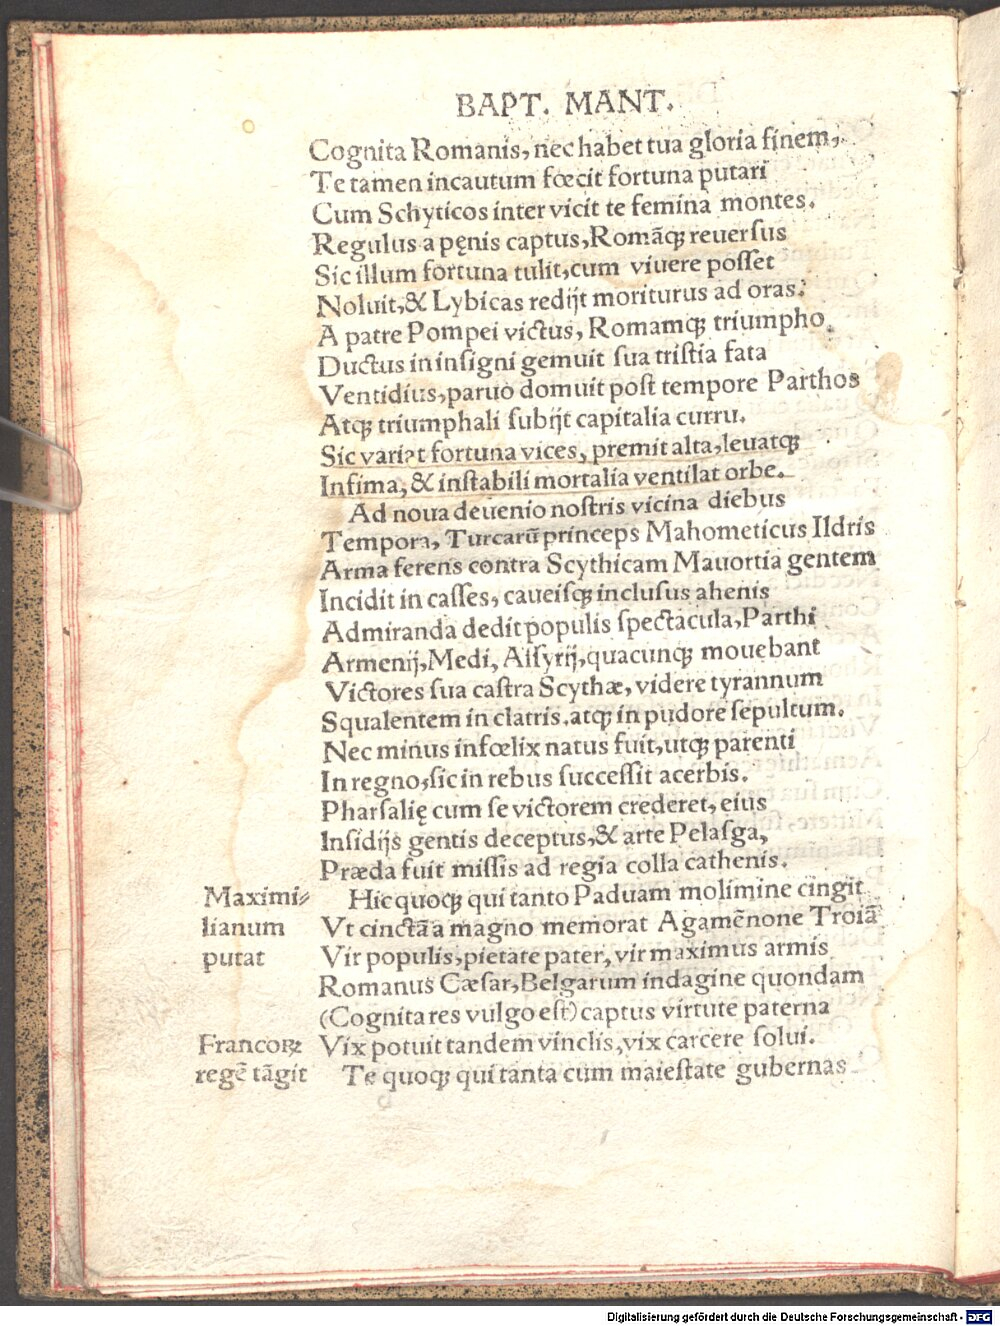 BAPT. MANT.
Cognita Romanis, nec habet tua gloria finem,
Te tamen incautum fœcit fortuna putari
Cum Schyticos inter vicit te femina montes.
Regulus a pęnis captus, Romãq; reuersus
Sic illum fortuna tulit, cum viuere posset
Noluit, & Lybicas redijt moriturus ad oras.
A patre Pompei victus, Romamq; triumpho.
Ductus in insigni gemuit sua tristia fata
Ventidius, paruo domuit post tempore Parthos
Atq; triumphali subijt capitalia curru.
Sic variat fortuna vices, premit alta, leuatq;
Infima, & instabili mortalia ventilat orbe.
Ad noua deuenio nostris vicina diebus
Tempora, Turcarũ princeps Mahometicus Ildris
Arma ferens contra Scythicam Mauortia gentem
Incidit in casses, caueisq; inclusus ahenis
Admiranda dedit populis spectacula, Parthi
Armenij, Medi, Assyrij, quacunq; mouebant
Victores sua castra Scythæ, videre tyrannum
Squalentem in clatris, atq; in pudore sepultum.
Nec minus infœlix natus fuit, utq; parenti
In regno, sic in rebus successit acerbis.
Pharsalię cum se victorem crederet, eius
Insidijs gentis deceptus, & arte Pelasga,
Præda fuit missis ad regia colla cathenis.
Maximi=
lianum
putat
Hic quoq; qui tanto Paduam molimine cingit
Vt cinctã a magno memorat Agamẽnone Troiã
Vir populis, pietate pater, vir maximus armis
Romanus Cæsar, Belgarum indagine quondam
(Cognita res vulgo est) captus virtute paterna
Vix potuit tandem vinclis, vix carcere solui.
Francoꝝ
regẽ tãgit
Te quoq; qui tanta cum maiestate gubernas
Digitalisierung gefördert durch die Deutsche Forschungsgemeinschaft - DFG